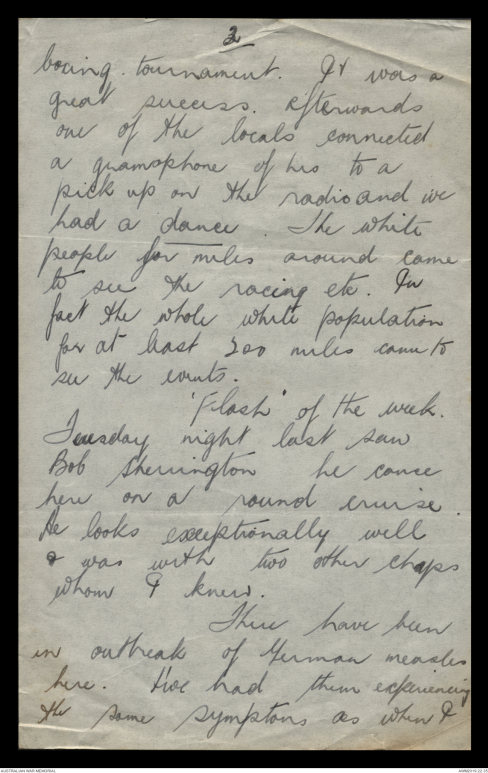 3
boxing tournament. It was a
great success. Afterwards
one of the locals connected
a gramophone of his to a
pick up on the radio and we
had a dance. The white
people for miles around came
to see the racing etc. In
fact the whole white population
for at least 200 miles came to
see the events.
'Flash' of the week.
Tuesday night last saw
Bob Sherrington he came
here on a round cruise.
He looks exceptionally well
& was with two other chaps
whom I knew.
There have been
an outbreak of German measles
here. I've had them experiencing
the same symptons as when I
AUSTRALIAN WAR MEMORIAL